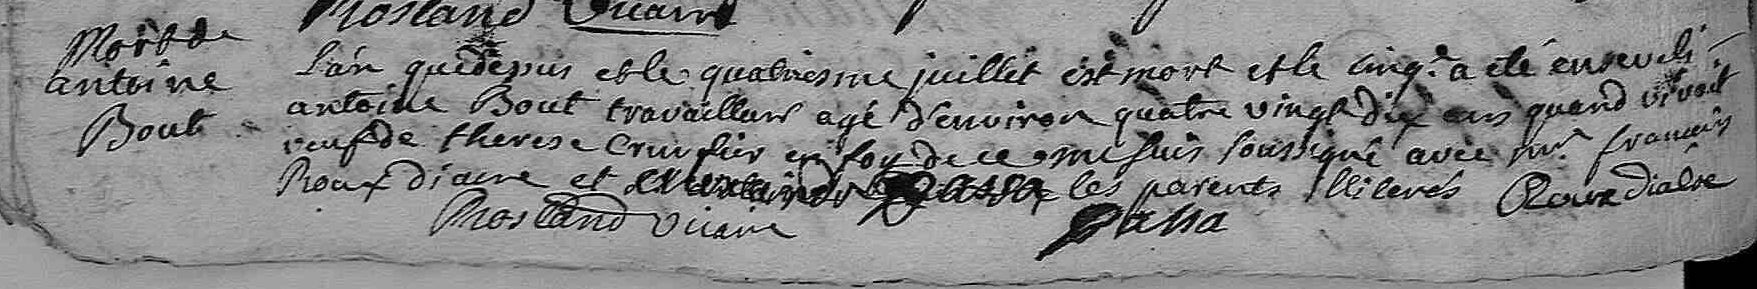 Rostand Vicaire
Mort de
antoine
Bout
L'an que dessus et le quatriesme juillet est mort et le cinq.e a eté enseveli
antoine Bout travailleur agé d'environ quatre vingt dix ans quand vivoit
veuf de therese en foy de ce me suis soussigné avec mr. francois
Roux diacre et les parents illiterés Roux diacre
Rostand vicaire